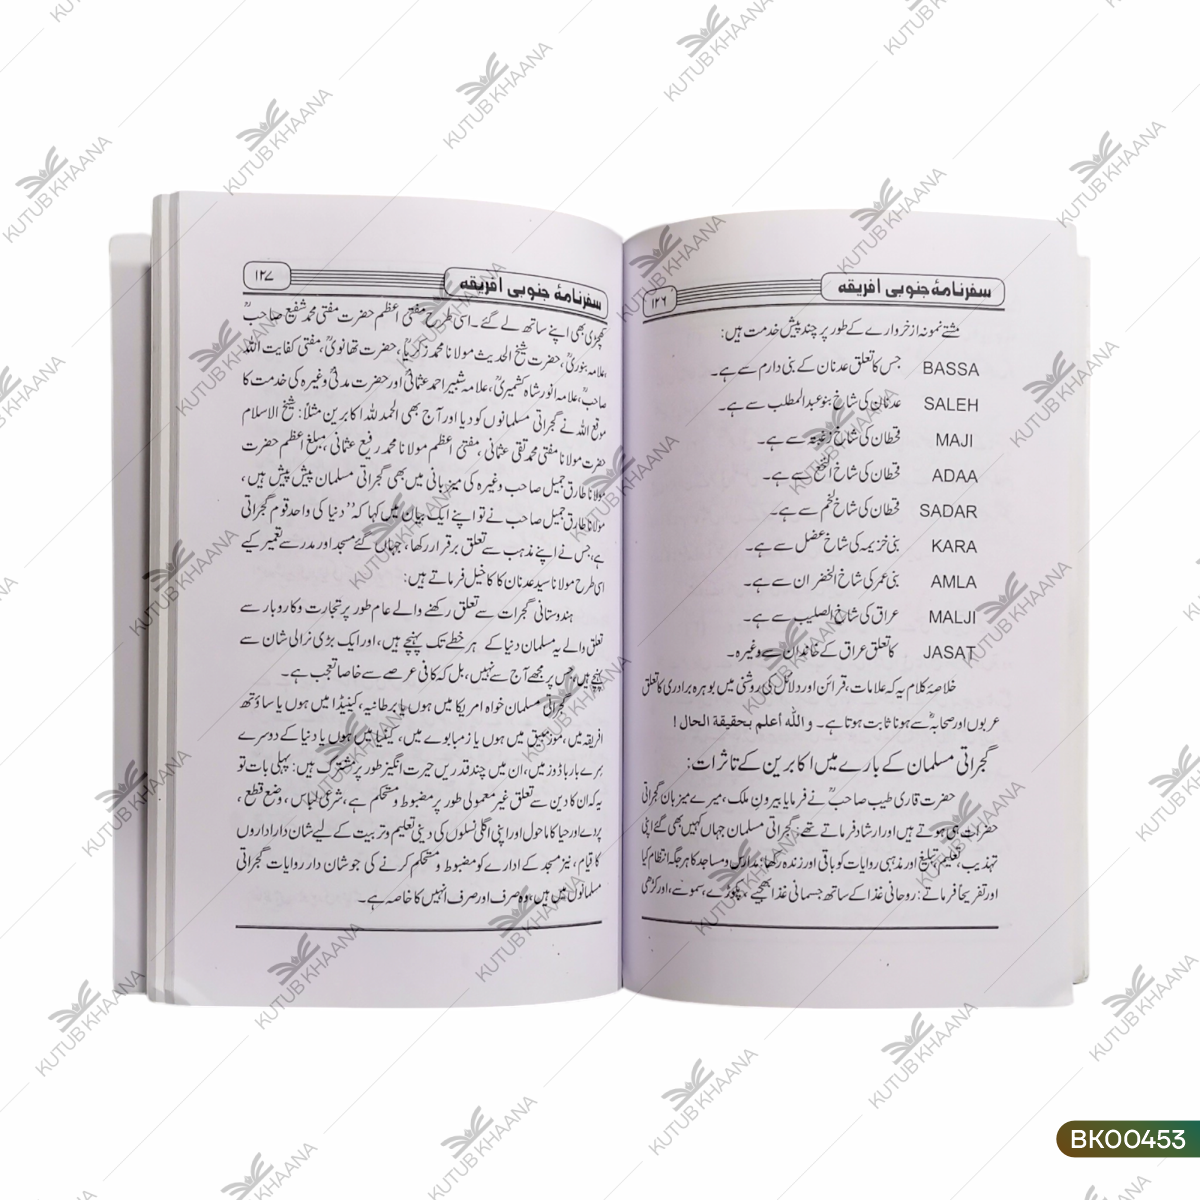 سفرنامۂ جنوبی افریقہ
۱۲۶
مشتے نمونہ از خروارے کے طور پر چند پیش خدمت ہیں:
BASSA جس کا تعلق عدنان کے بنی دارم سے ہے۔
SALEH عدنان کی شاخ بنو عبدالمطلب سے ہے۔
MAJI قحطان کی شاخ سے ہے۔
ADAA قحطان کی شاخ النخع سے ہے۔
SADAR قحطان کی شاخ لخم سے ہے۔
KARA بنی خزیمہ کی شاخ عضل سے ہے۔
AMLA بنی عمر کی شاخ الخضر ان سے ہے۔
MALJI عراق کی شاخ الصلیب سے ہے۔
JASAT کا تعلق عراق کے خاندان سے وغیرہ۔
خلاصۂ کلام یہ کہ علامات، قرائن اور دلائل کی روشنی میں بوہرہ برادری کا تعلق
عربوں اور صحابہؓ سے ہونا ثابت ہوتا ہے۔ و اللہ أعلم بحقیقة الحال !
گجراتی مسلمان کے بارے میں اکابرین کے تاثرات:
حضرت قاری طیب صاحبؒ نے فرمایا بیرونِ ملک، میرے میزبان گجراتی
حضرات ہی ہوتے ہیں اور ارشاد فرماتے تھے: گجراتی مسلمان جہاں کہیں بھی گئے اپنی
تہذیب، تعلیم، تبلیغ اور مذہبی روایات کو باقی اور زندہ رکھا: مدارس و مساجد کا ہر جگہ انتظام کیا
اور تفریحاً فرماتے: روحانی غذا کے ساتھ جسمانی غذا بھجیے، پکوڑے، سموسے، اور کڑھی
سفرنامۂ جنوبی افریقہ
۱۲۷
کھچڑی بھی اپنے ساتھ لے گئے۔ اسی طرح مفتی اعظم حضرت مفتی محمد شفیع صاحبؒ
علامہ بنوریؒ، حضرت شیخ الحدیث مولانا محمد زکریاؒ، حضرت تھانویؒ، مفتی کفایت اللہ
صاحبؒ، علامہ انور شاہ کشمیریؒ، علامہ شبیر احمد عثمانیؒ اور حضرت مدنیؒ وغیرہ کی خدمت کا
موقع اللہ نے گجراتی مسلمانوں کو دیا اور آج بھی الحمد للہ اکابرین مثلاً: شیخ الاسلام
حضرت مولانا مفتی محمد تقی عثمانی، مفتی اعظم مولانا محمد رفیع عثمانی، مبلغ اعظم حضرت
مولانا طارق جمیل صاحب وغیرہ کی میزبانی میں بھی گجراتی مسلمان پیش پیش ہیں،
مولانا طارق جمیل صاحب نے تو اپنے ایک بیان میں کہا کہ "دنیا کی واحد قوم گجراتی
ہے، جس نے اپنے مذہب سے تعلق برقرار رکھا، جہاں گئے مسجد اور مدرسے تعمیر کیے
اسی طرح مولانا سید عدنان کاکاخیل فرماتے ہیں:
ہندوستانی گجرات سے تعلق رکھنے والے عام طور پر تجارت و کاروبار سے
تعلق والے یہ مسلمان دنیا کے ہر خطے تک پہنچے ہیں، اور ایک بڑی نرالی شان سے
پہنچے ہیں، جس پر مجھے آج سے نہیں، بل کہ کافی عرصے سے خاصا تعجب ہے۔
گجراتی مسلمان خواہ امریکا میں ہوں یا برطانیہ، کینیڈا میں ہوں یا ساؤتھ
افریقہ میں، موزمبیق میں ہوں یا زمبابوے میں، کینیا میں ہوں یا دنیا کے دوسرے
سرے بارباڈوز میں، ان میں چند قدریں حیرت انگیز طور پر مشترک ہیں: پہلی بات تو
یہ کہ ان کا دین سے تعلق غیر معمولی طور پر مضبوط و مستحکم ہے، شرعی لباس، وضع قطع،
پردے اور حیا کا ماحول اور اپنی اگلی نسلوں کی دینی تعلیم و تربیت کے لیے شان دار اداروں
کا قیام، نیز مسجد کے ادارے کو مضبوط و مستحکم کرنے کی جو شان دار روایات گجراتی
مسلمانوں میں ہیں، وہ صرف اور صرف انہیں کا خاصہ ہے۔
KUTUB KHAANA
BK00453